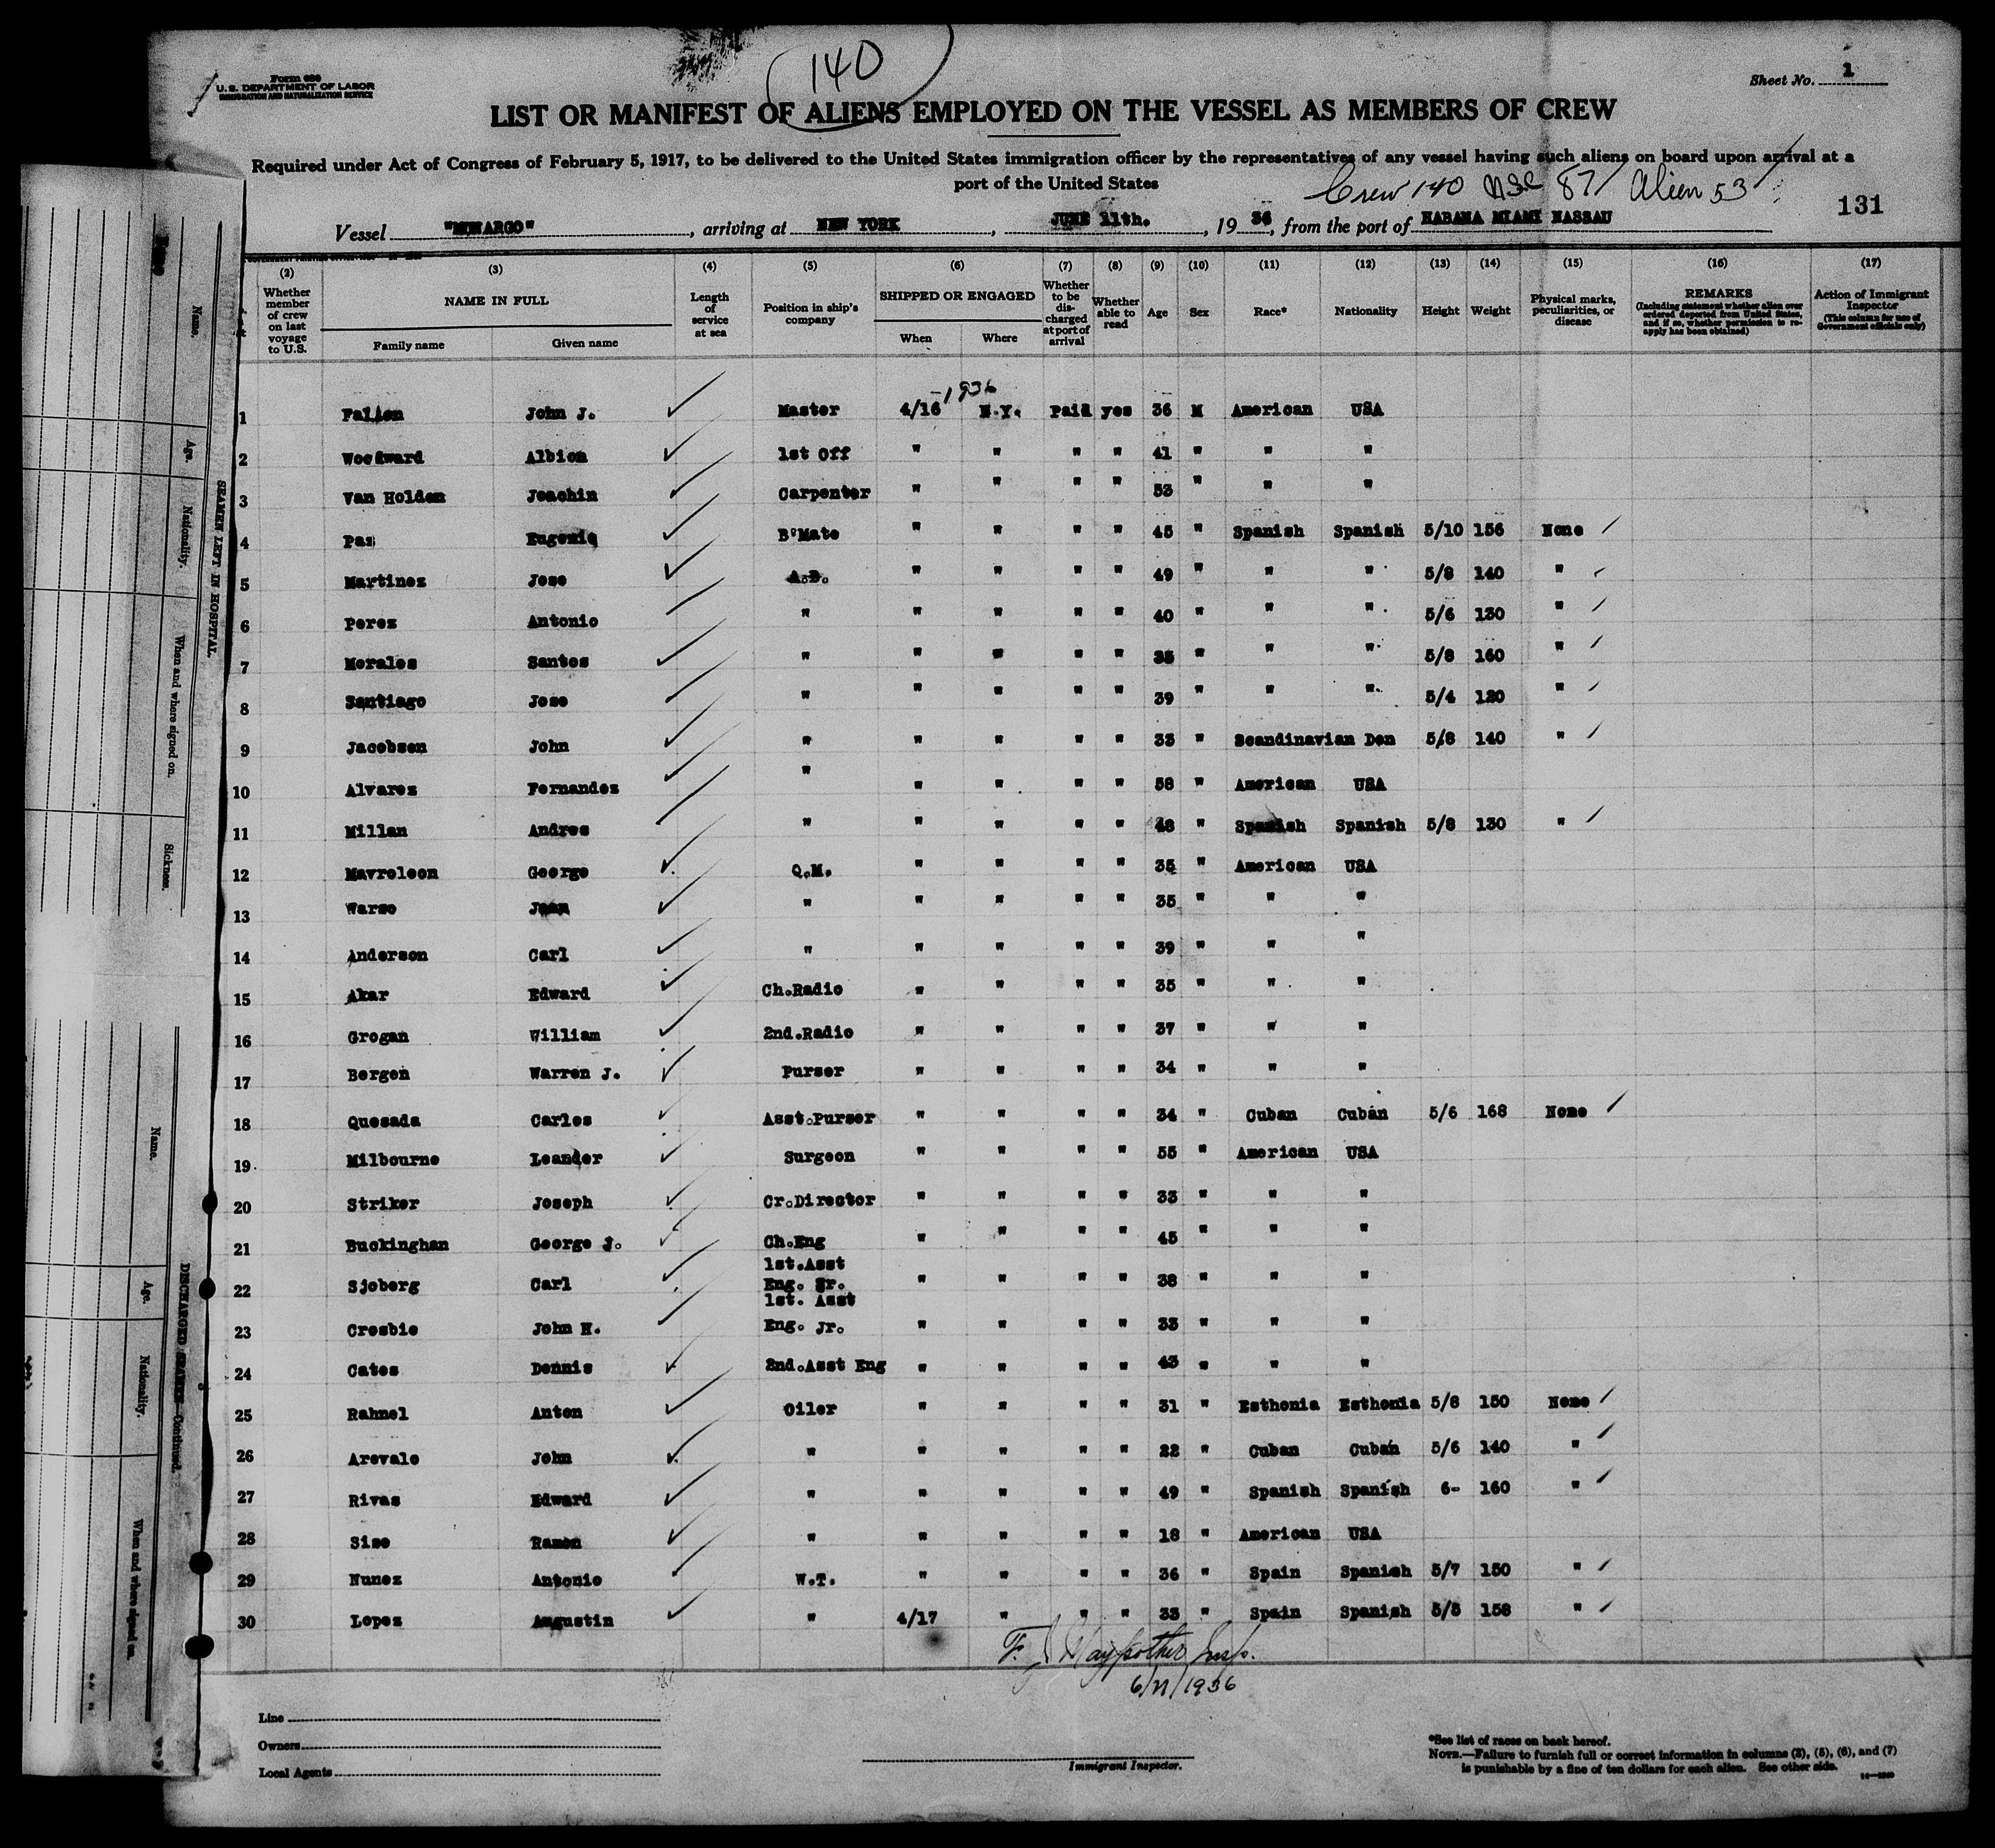 140
Form 680
U.S. DEPARTMENT OF LABOR
IMMIGRATION AND NATURALIZATION SERVICE
Sheet No. 1
LIST OR MANIFEST OF ALIENS EMPLOYED ON THE VESSEL AS MEMBERS OF CREW
Required under Act of Congress of February 5, 1917, to be delivered to the United States immigration officer by the representatives of any vessel having such aliens on board upon arrival at a
port of the United States
Crew 140 USC 87 Alien 53
131
Vessel "MUNARGO", arriving at NEW YORK, JUNE 11th., 1936, from the port of HABANA MIAMI NASSAU
(2) (3) (4) (5) (6) (7) (8) (9) (10) (11) (12) (13) (14) (15) (16) (17)
Whether member of crew on last voyage to U.S.
NAME IN FULL
Family name Given name
Length of service at sea
Position in ship's company
SHIPPED OR ENGAGED
When Where
Whether to be discharged at port of arrival
Whether able to read
Age
Sex
Race*
Nationality
Height
Weight
Physical marks, peculiarities, or disease
REMARKS
(Including statement whether alien ever ordered deported from United States, and if so, whether permission to reapply has been obtained)
Action of Immigrant Inspector
(This column for use of Government officials only)
1936
1 Fallon John J. Master 4/16 N.Y. Paid yes 36 M American USA
2 Woodward Albion 1st Off " " " " 41 " " "
3 Van Holden Joachin Carpenter " " " " 53 " " "
4 Paz Eugenio B'Mate " " " " 45 " Spanish Spanish 5/10 156 None
5 Martinez Jose A.B. " " " " 49 " " " 5/8 140 "
6 Perez Antonio " " " " " 40 " " " 5/6 130 "
7 Morales Santos " " " " " 35 " " " 5/8 160 "
8 Santiago Jose " " " " " 39 " " " 5/4 120 "
9 Jacobsen John " " " " " 33 " Scandinavian Den 5/8 140 "
10 Alvarez Fernandez " " " " " 58 " American USA
11 Millan Andres " " " " " 48 " Spanish Spanish 5/8 130 "
12 Mavroleon George Q.M. " " " " 35 " American USA
13 Warso " " " " " 35 " " "
14 Anderson Carl " " " " " 39 " " "
15 Akar Edward Ch.Radio " " " " 35 " " "
16 Grogan William 2nd.Radio " " " " 37 " " "
17 Bergen Warren J. Purser " " " " 34 " " "
18 Quesada Carlos Asst.Purser " " " " 34 " Cuban Cuban 5/6 168 None
19 Milbourne Leander Surgeon " " " " 55 " American USA
20 Striker Joseph Cr.Director " " " " 33 " " "
21 Buckinghan George J. Ch.Eng " " " " 45 " " "
22 Sjoberg Carl 1st.Asst Eng. Sr. " " " " 38 " " "
23 Crosbie John H. 1st. Asst Eng. Jr. " " " " 33 " " "
24 Cates Dennis 2nd.Asst Eng " " " " 43 " " "
25 Rahnel Anton Oiler " " " " 31 " Esthonia Esthonia 5/8 150 None
26 Arevalo John " " " " " 22 " Cuban Cuban 5/6 140 "
27 Rivas Edward " " " " " 49 " Spanish Spanish 6- 160 "
28 Siso Ramon " " " " " 18 " American USA
29 Nunez Antonio W.T. " " " " 36 " Spain Spanish 5/7 150 "
30 Lopez Augustin " 4/17 " " " 33 " Spain Spanish 5/5 158 "
6/11/1936
Line
Owners
Local Agents
Immigrant Inspector.
*See list of races on back hereof.
NOTE.—Failure to furnish full or correct information in columns (3), (5), (6), and (7)
is punishable by a fine of ten dollars for each alien. See other side.
Name.
Age.
Nationality.
When and where signed on.
Sickness.
SEAMEN LEFT IN HOSPITAL.
Name.
Age.
Nationality.
When and where signed on.
DISCHARGED SEAMEN—Continued.